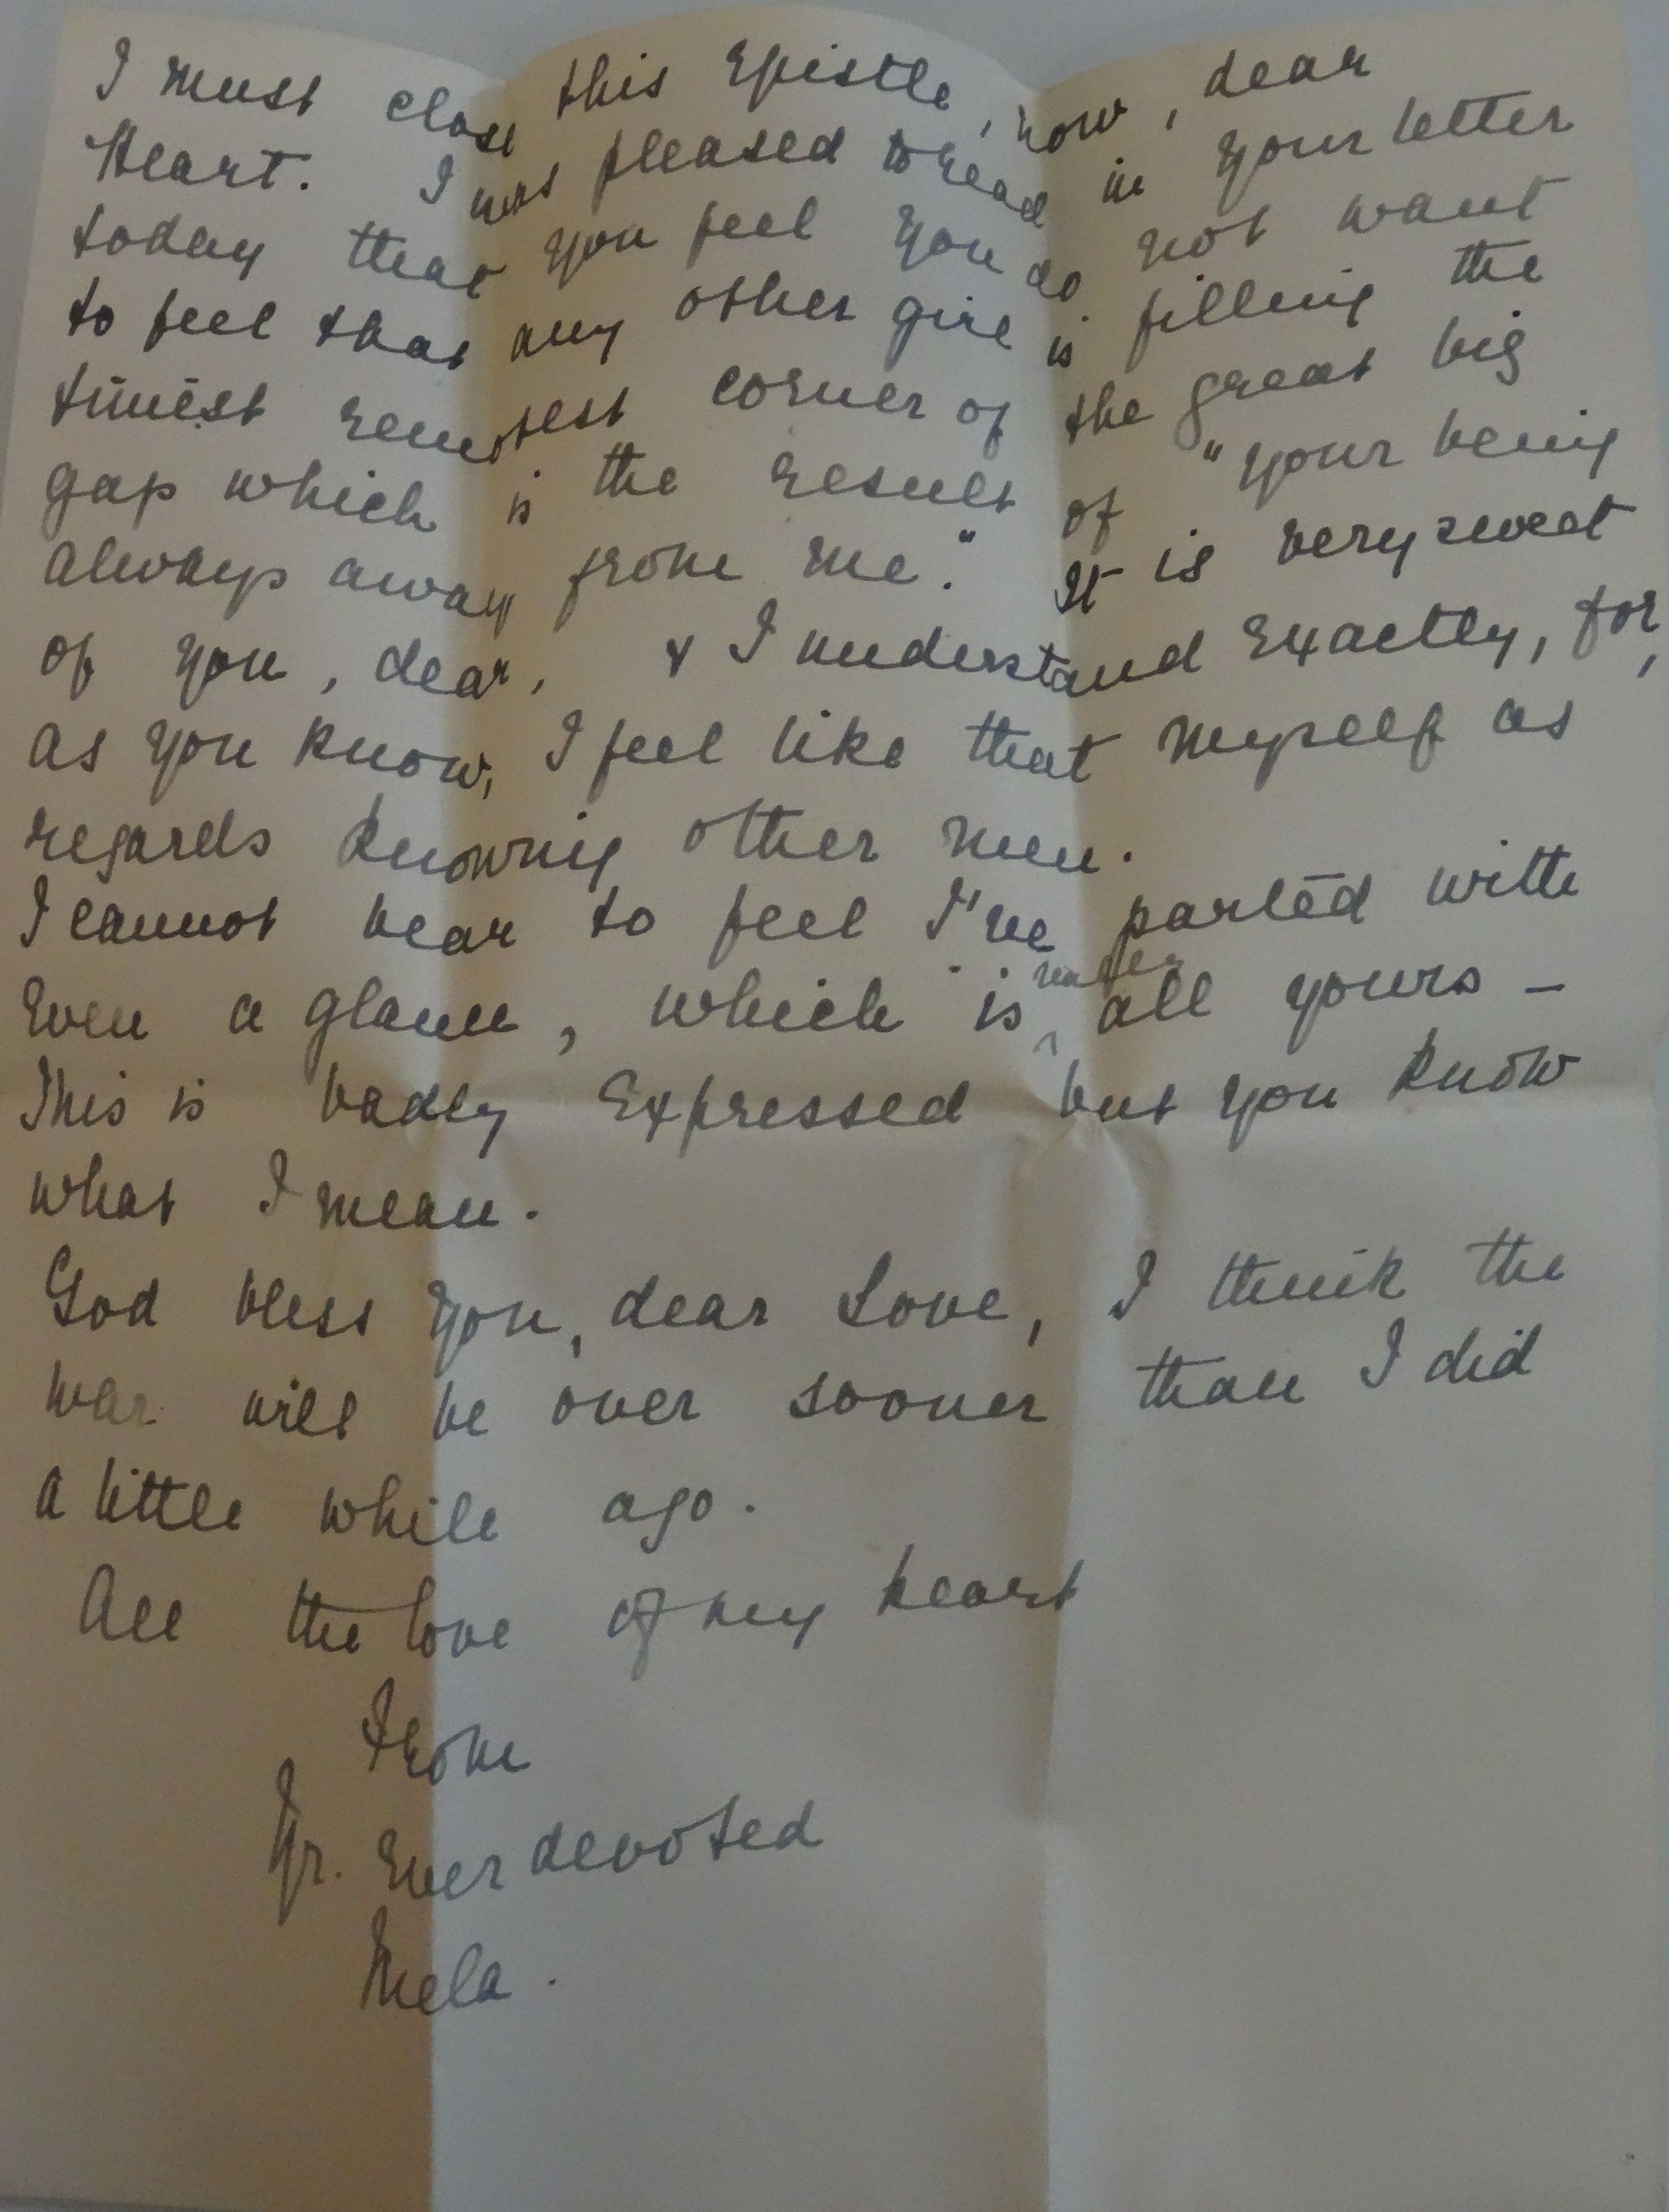 I must close this Epistle, now, dear
Heart. I was pleased to read in your letter
today that you feel you do not want
to feel that any other girl is filling the
tiniest remotest corner of the great big
gap which is the result of "your being
always away from me." It is very sweet
of you, dear, & I understand exactly, for,
as you know, I feel like that myself as
regards knowing other men.
I cannot bear to feel I've parted with
even a glance, which is all yours -
This is badly expressed but you know
what I mean.
God bless you, dear Love, I think the
war will be over sooner than I did
a little while ago.
All the love of my heart
From
Yr. Ever devoted
Mela.